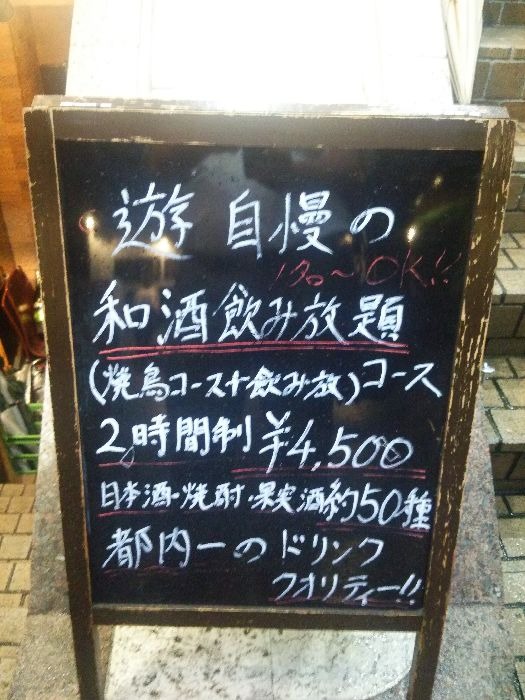 遊 自慢の
1名〜OK!!
和酒飲み放題
(焼鳥コース+飲み放)コース
2時間制 ¥4,500
日本酒・焼酎・果実酒約50種
都内一のドリンク
クオリティー!!